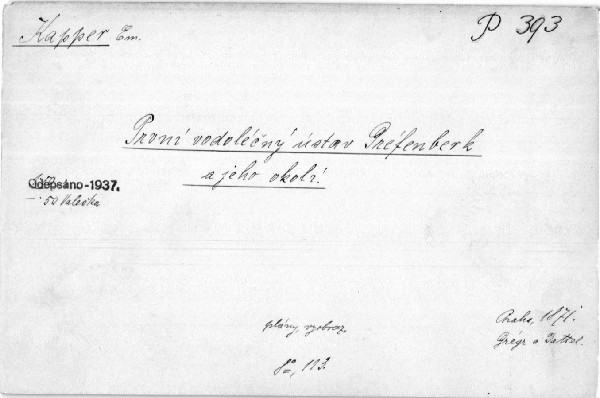 Kapper Em.
P 393
První vodoléčný ústav Gréfenberk
a jeho okolí.
Odepsáno-1937.
plány, vyobraz.
8°, 113.
Praha, 1871.
Grégr a Dattel.